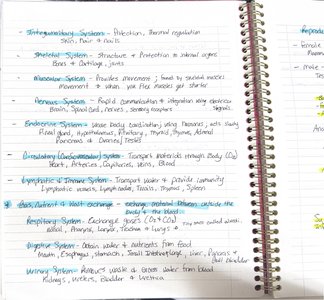 - Integumentary System - Protection, thermal regulation
Skin, Hair & nails
- Skeletal System - Structure & Protection to internal organs
Bones & Cartilage, joints
- Muscular System - Provides movement ; found by skeletal muscles
Movement & when you flex muscles get shorter
- Nervous System - Rapid communication & integration using electrical signals
Brain, Spinal Cord, nerves, sensory receptors
- Endocrine System - whole body coordination using hormones; acts slowly
Pineal gland, Hypothalamus, Pituitary, Thyroid, Thymus, Adrenal
Pancreas & Ovaries / Testes
- Circulatory (Cardiovascular) System - Transport materials through body (O₂)
Heart, Arteries, Capillaries, Veins, Blood
- Lymphatic & Immune System - Transport water & provide immunity
Lymphatic vessels, Lymph nodes, Tonsils, Thymus, Spleen
Gas, Nutrient & Heat exchange - exchange material between outside
the body & the blood
Respiratory System - Exchange gases (O₂ & CO₂)
Nasal, Pharynx, Larynx, Trachea & Lungs
Digestive System - Obtain water & nutrients from food
Mouth, Esophagus, Stomach, Small Intestine, Large, Liver, Pancreas &
Gall Bladder
Urinary System - Removes waste & excess water from blood
Kidneys, Ureters, Bladder & Urethra
- Female
- male -